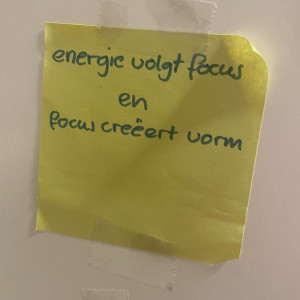 energie volgt focus
en
focus creëert vorm